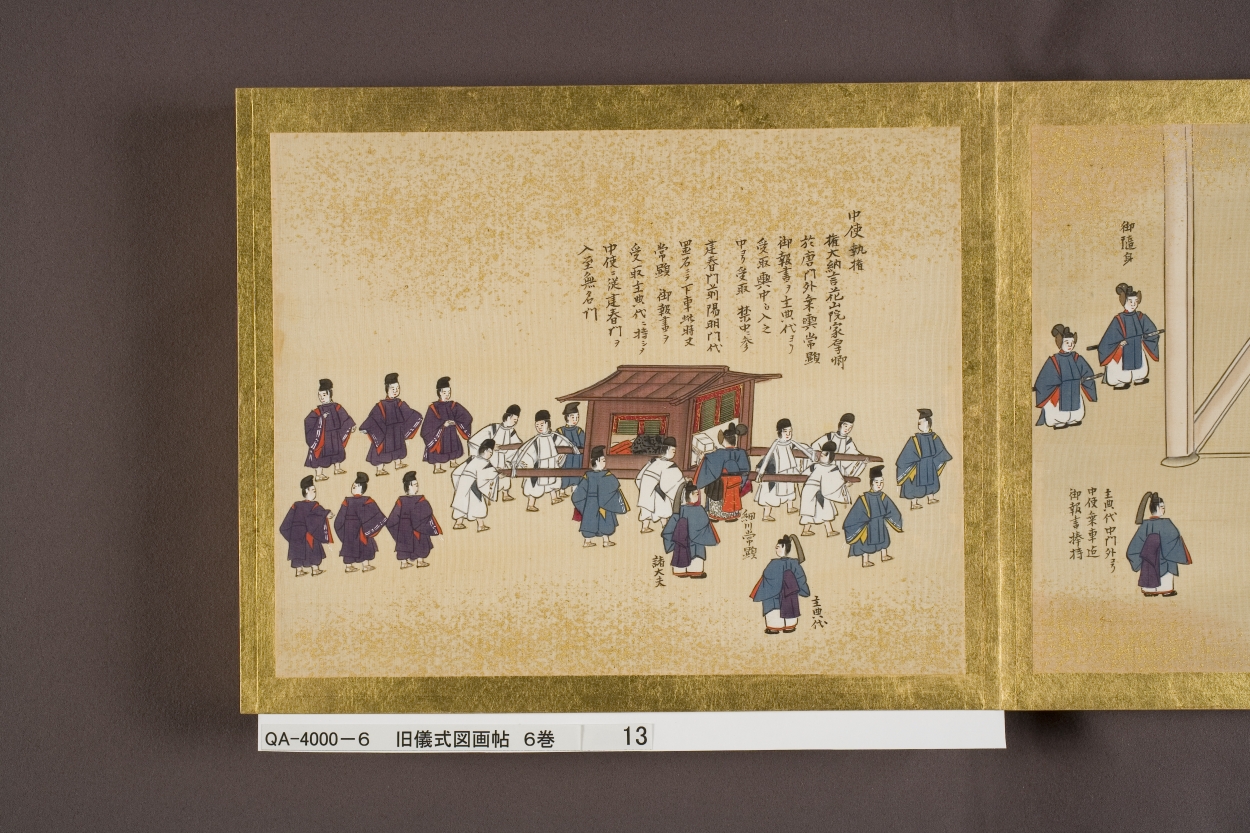 御随身
主典代中門外ヨリ
中使乗車迄
御報書捧持
中使執権
権大納言花山院家厚卿
於唐門外乗輿常顕
御報書ヲ主典代ヨリ
受取輿中ヘ入之
中ヨリ受取 禁中ニ参
建春門前陽明門代
置石ニテ下車
常顕 御報書ヲ
受取主典代ニ持シメ
中使ニ従建春門ヲ
入至無名門
細川常顕
諸大夫
主典代
QA-4000-6 旧儀式図画帖 6巻 13